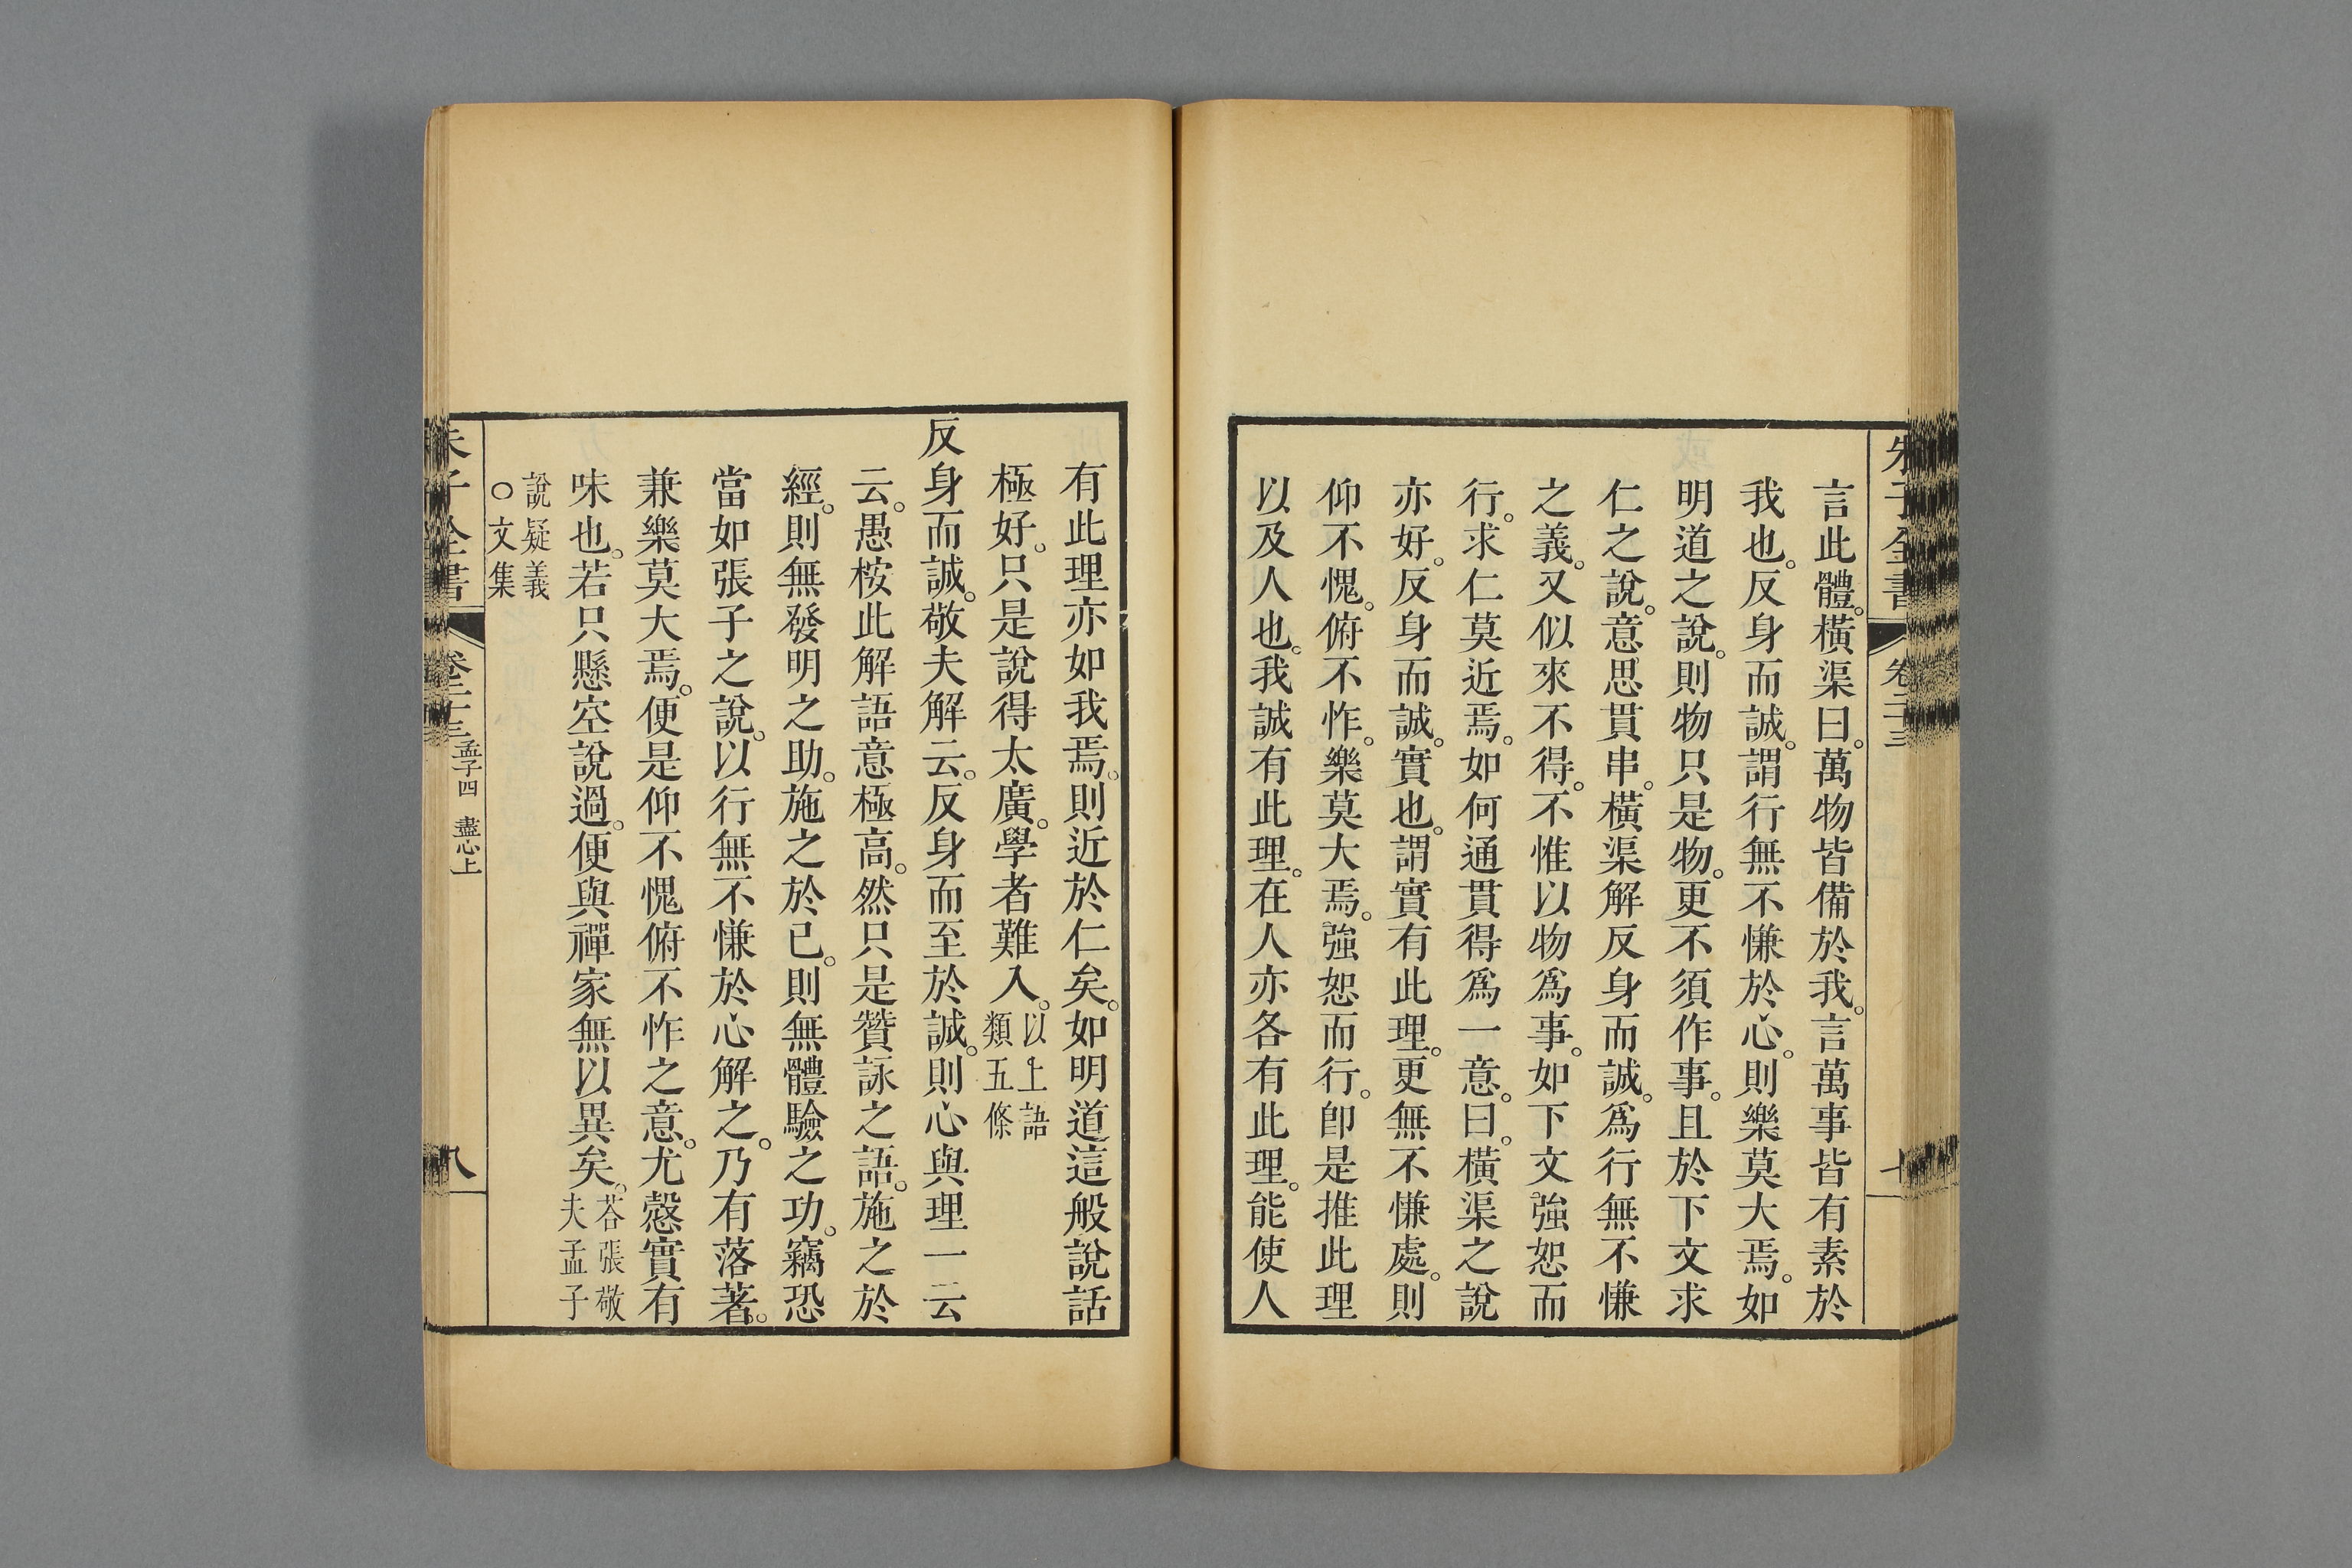 朱子全書 卷二十三
言此體。橫渠曰。萬物皆備於我。言萬事皆有素於
我也。反身而誠。謂行無不慊於心。則樂莫大焉。如
明道之說。則物只是物。更不須作事。且於下文求
仁之說。意思貫串。橫渠解反身而誠。爲行無不慊
之義。又似來不得。不惟以物爲事。如下文強恕而
行。求仁莫近焉。如何通貫得爲一意。曰。橫渠之說
亦好。反身而誠。實也。謂實有此理。更無不慊處。則
仰不愧。俯不怍。樂莫大焉。強恕而行。卽是推此理
以及人也。我誠有此理。在人亦各有此理。能使人
有此理亦如我焉。則近於仁矣。如明道這般說話
極好。只是說得太廣。學者難入。以上語
類五條
反身而誠。敬夫解云。反身而至於誠。則心與理一云
云。愚桉此解語意極高。然只是贊詠之語。施之於
經。則無發明之助。施之於己。則無體驗之功。竊恐
當如張子之說。以行無不慊於心解之。乃有落著。
兼樂莫大焉。便是仰不愧俯不怍之意。尤慤實有
味也。若只懸空說過。便與禪家無以異矣。荅張敬
夫孟子
說疑義
○文集
朱子全書 卷二十三 孟子四 盡心上 八